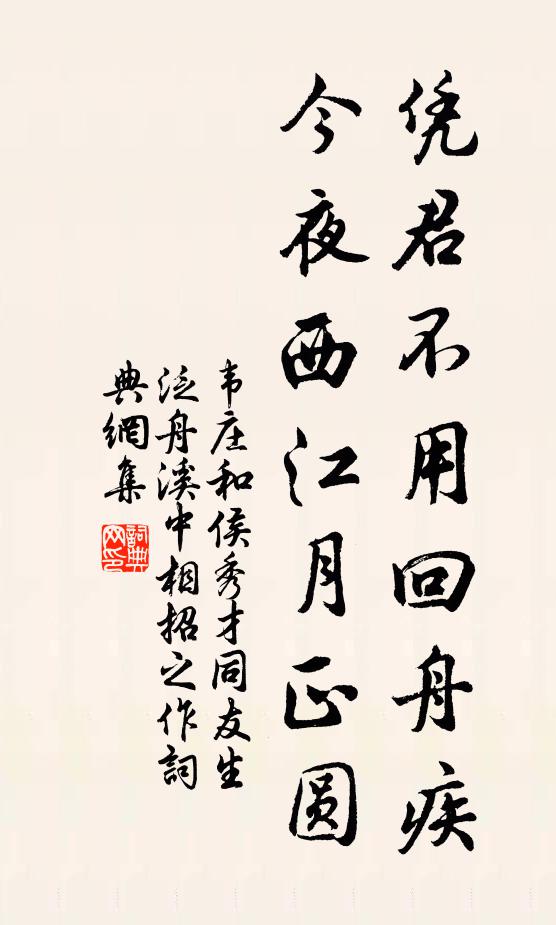 凭君不用回舟疾
今夜西江月正圆
韦庄和侯秀才同友生
泛舟溪中相招之作詞
典網集
詞典
网印